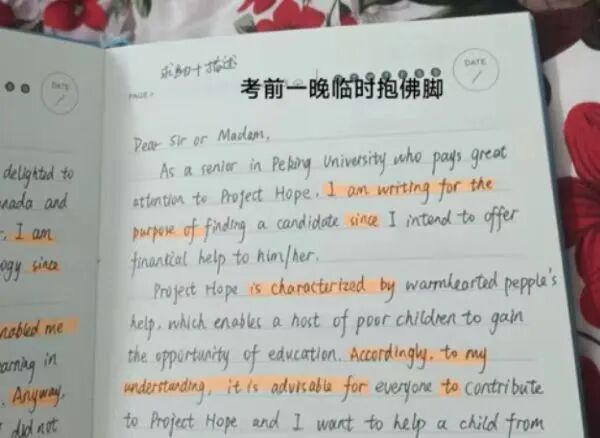 求助+描述
DATE
DATE
PAGE
考前一晚临时抱佛脚
delighted to
nada and
I am
ogy since
nabled me
arning in
Anyway,
did not
Dear Sir or Madam,
As a senior in Peking University who pays great
attention to Project Hope, I am writing for the
purpose of finding a candidate since I intend to offer
finantial help to him/her.
Project Hope is characterized by warmhearted pepple's
help, which enables a host of poor children to gain
the opportunity of education. Accordingly, to my
understanding, it is advisable for everyone to contribute
to Project Hope and I want to help a child from